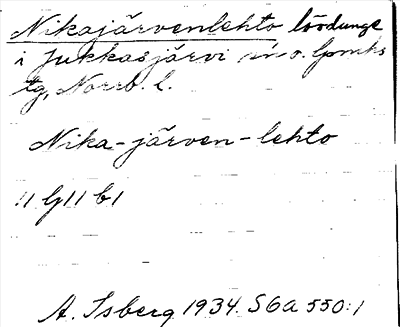 Nikajärvenlehto lövdunge
i Jukkasjärvi sn o. lpmks
tg, Norrb. l.
Nika-järven-lehto
A. Isberg 1934. S6a 550:1